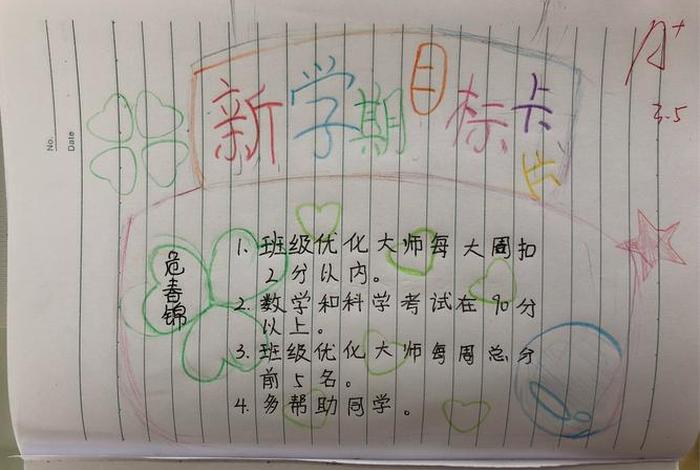 No.
Date
A+
3.5
新学期目标卡片
危春锦
1. 班级优化大师每大周扣
2分以内。
2. 数学和科学考试在90分
以上。
3. 班级优化大师每周总分
前5名。
4. 多帮助同学。